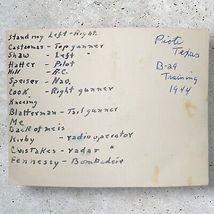 Standing Left-Right.
Castonas - Top gunner
Shaw - Left "
Hatter - Pilot
Hill - A.C.
Speiser - Nav.
Cook - Right gunner
Kneeing
Blatterman - Tail gunner
Me
Back of me is
Kirby - radio operator
Cwistakes - radar "
Fennessy - Bombadeir
Texas
B-29
Training
1944